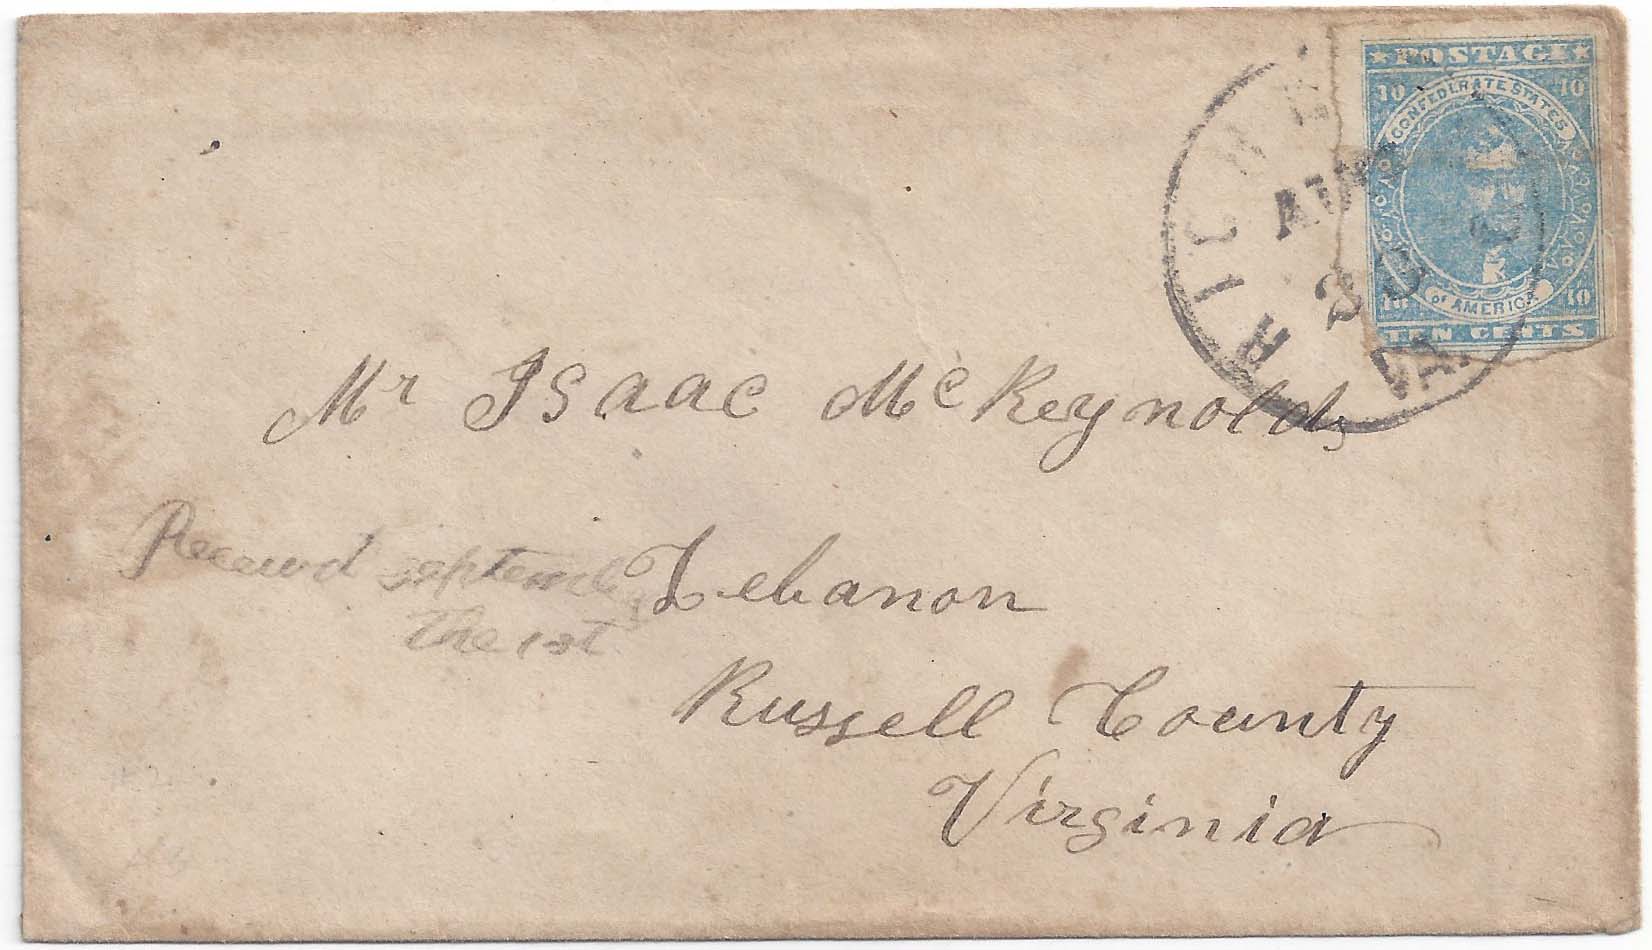 ★ POSTAGE ★
10 10
CONFEDERATE STATES
of AMERICA
10 10
TEN CENTS
AUG
30
VA.
Mr Isaac McReynolds
Received september
the 1st
Lebanon
Russell County
Virginia